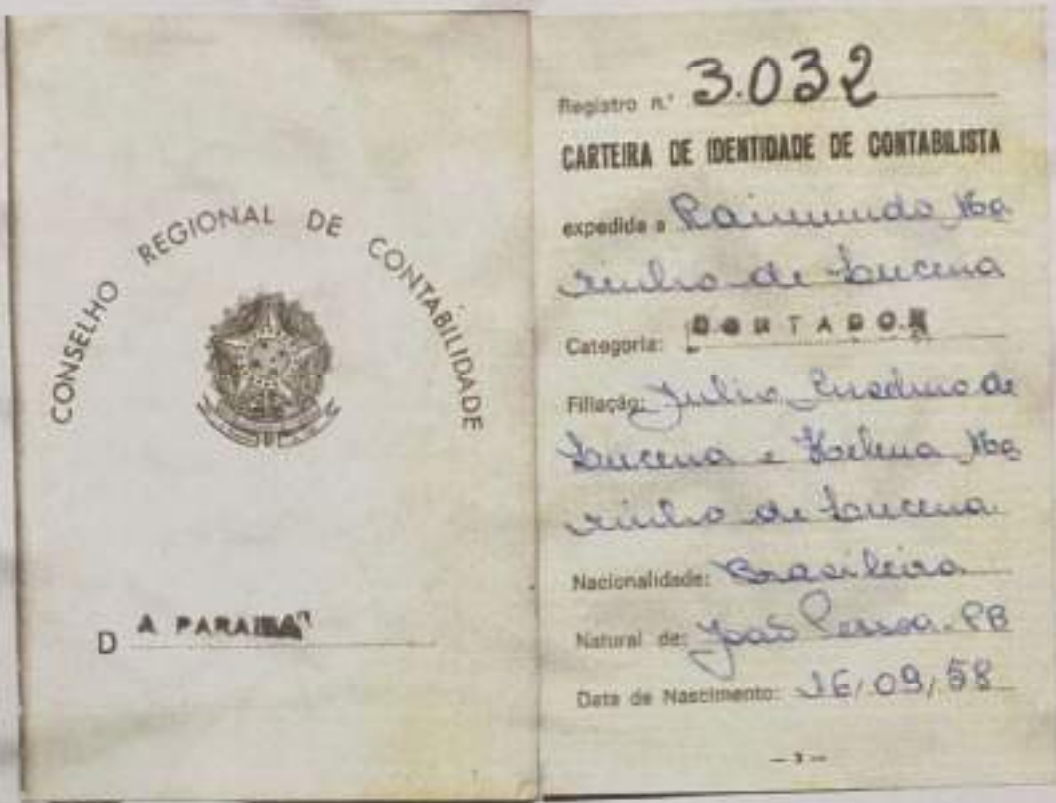 CONSELHO REGIONAL DE CONTABILIDADE
DA PARAIBA
Registro n.º 3.032
CARTEIRA DE IDENTIDADE DE CONTABILISTA
expedida a Raimundo Ma
rinho de Lucena
Categoria: CONTADOR
Filiação: Julio de
Lucena e Ma
rinho de Lucena
Nacionalidade: Brasileira
Natural de: João Pessoa-PB
Data de Nascimento: 16/09/58
— 3 —